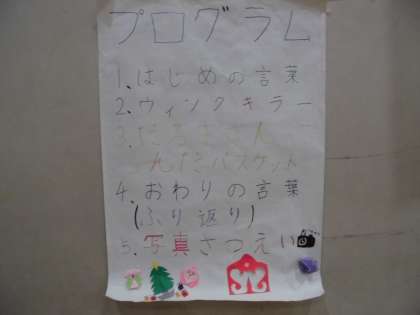 プログラム
1、はじめの言葉
2、ウィンクキラー
3、だるまさん
バスケット
4、おわりの言葉
(ふり返り)
5、写真さつえい